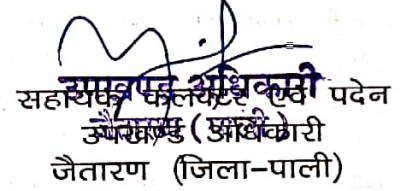 उपखण्ड अधिकारी
सहायक कलक्टर एवं पदेन
उपखण्ड अधिकारी
जैतारण (जिला-पाली)